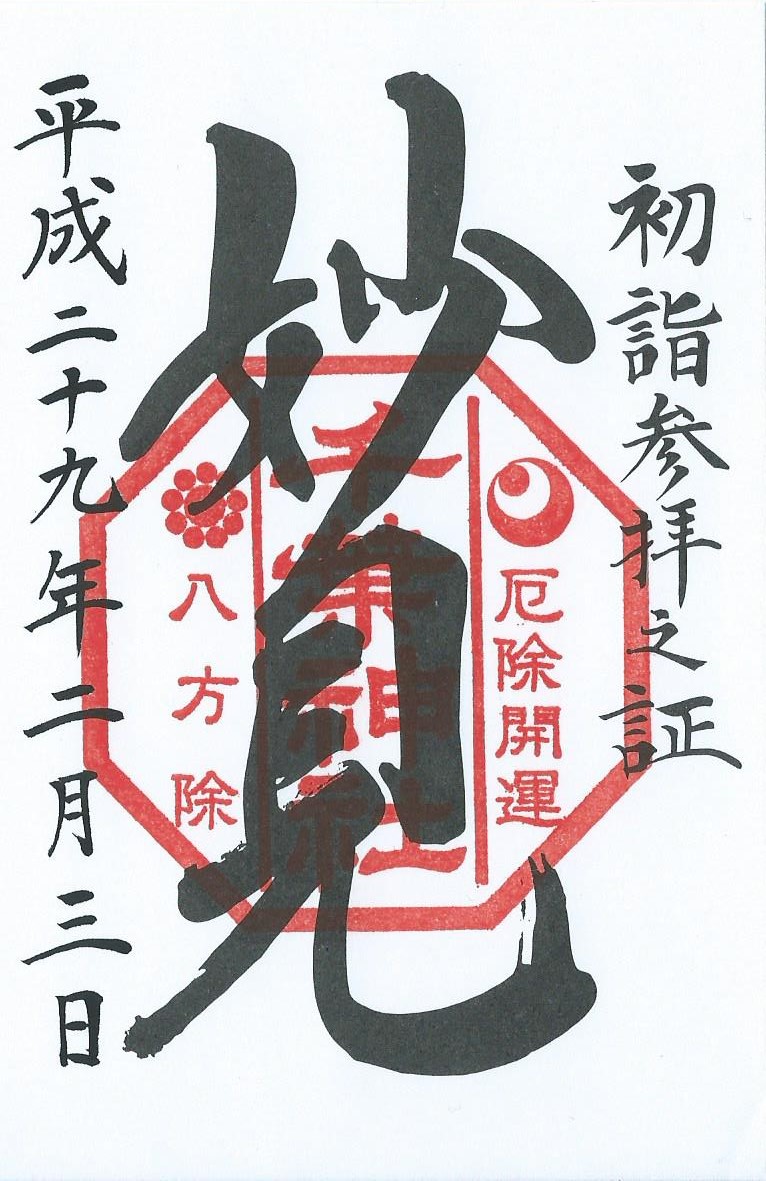 初詣参拝之証
妙見
厄除開運
千葉神社
八方除
平成二十九年二月三日